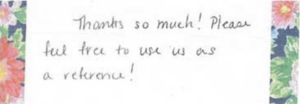 Thanks so much! Please
feel free to use us as
a reference!